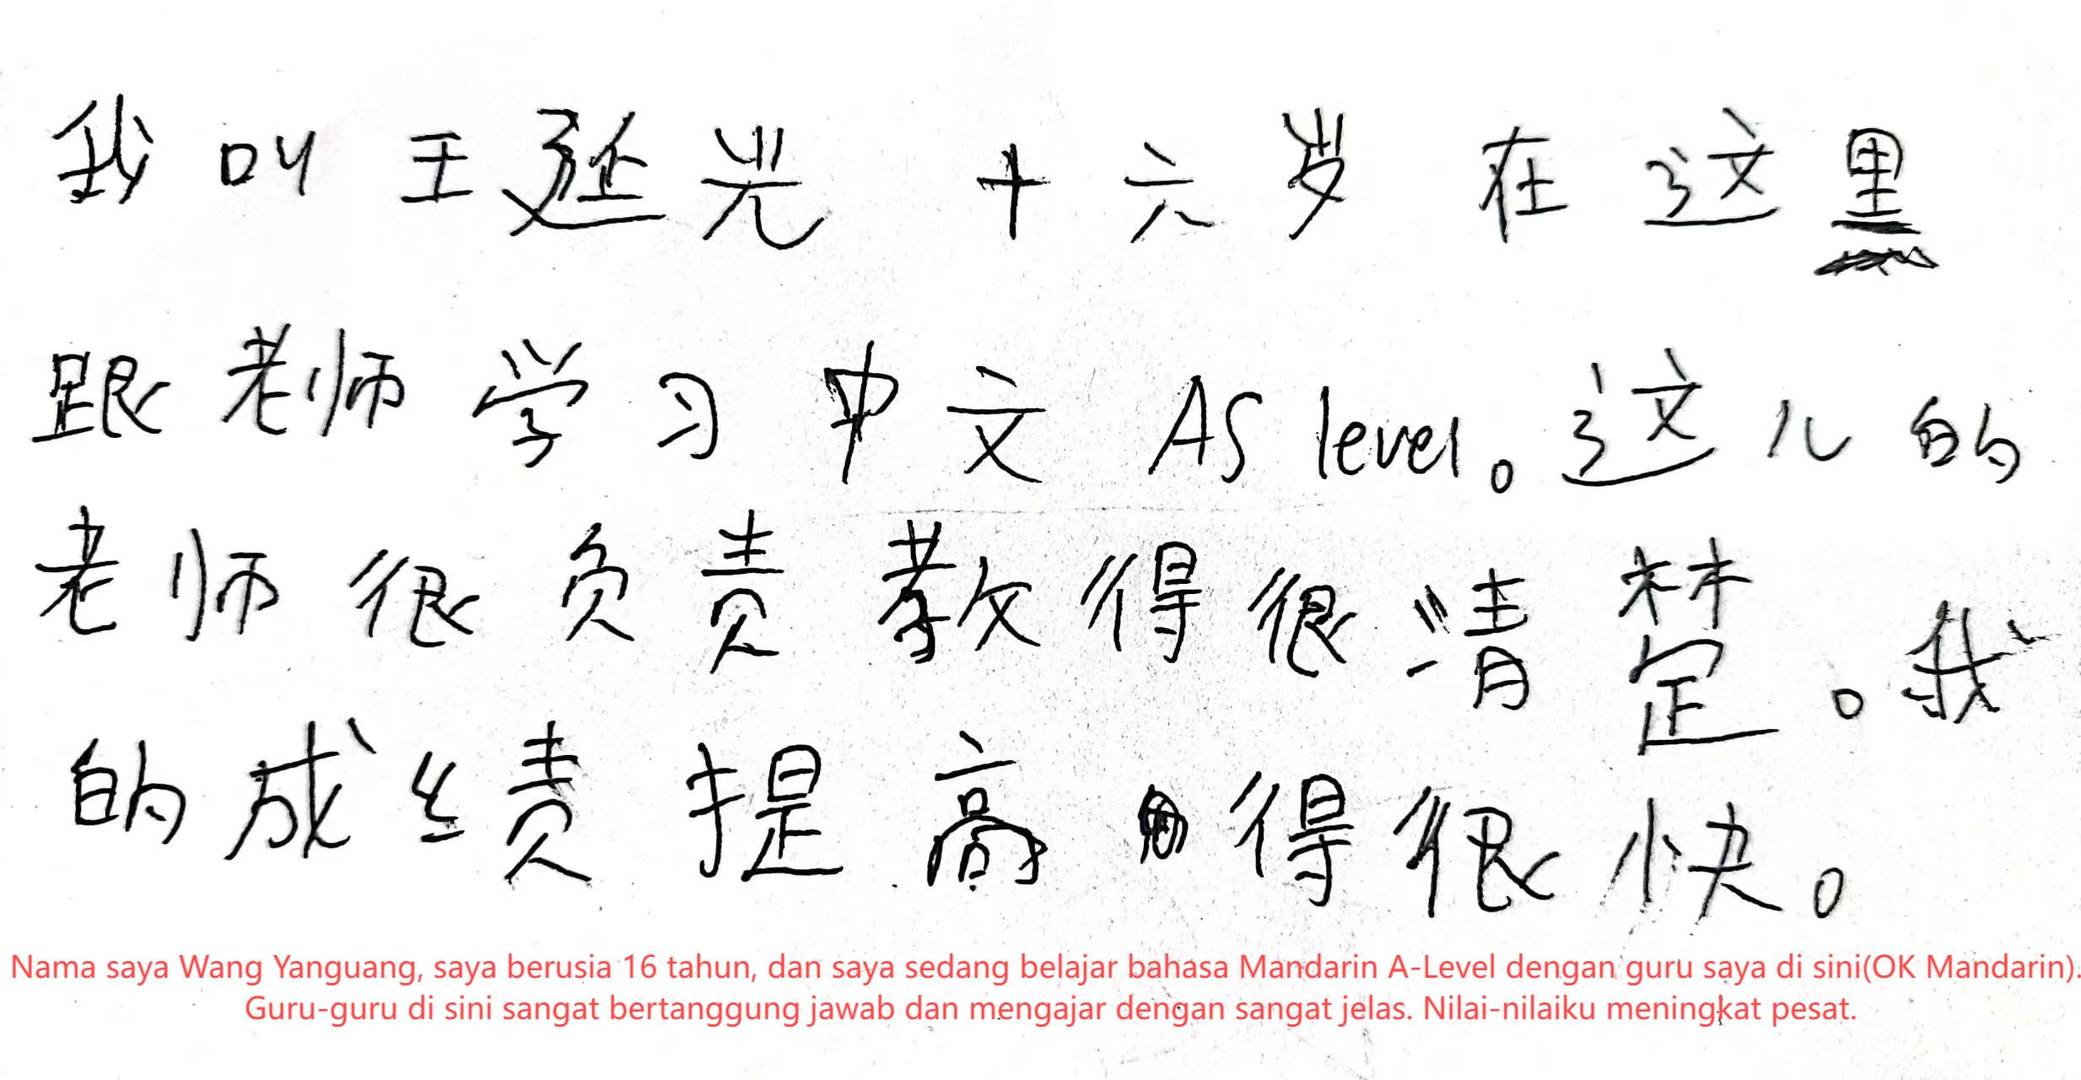 我叫王延光 十六岁 在这里
跟老师学习中文 AS level。这儿的
老师很负责教得很清楚。我
的成绩提高得很快。
Nama saya Wang Yanguang, saya berusia 16 tahun, dan saya sedang belajar bahasa Mandarin A-Level dengan guru saya di sini(OK Mandarin).
Guru-guru di sini sangat bertanggung jawab dan mengajar dengan sangat jelas. Nilai-nilaiku meningkat pesat.